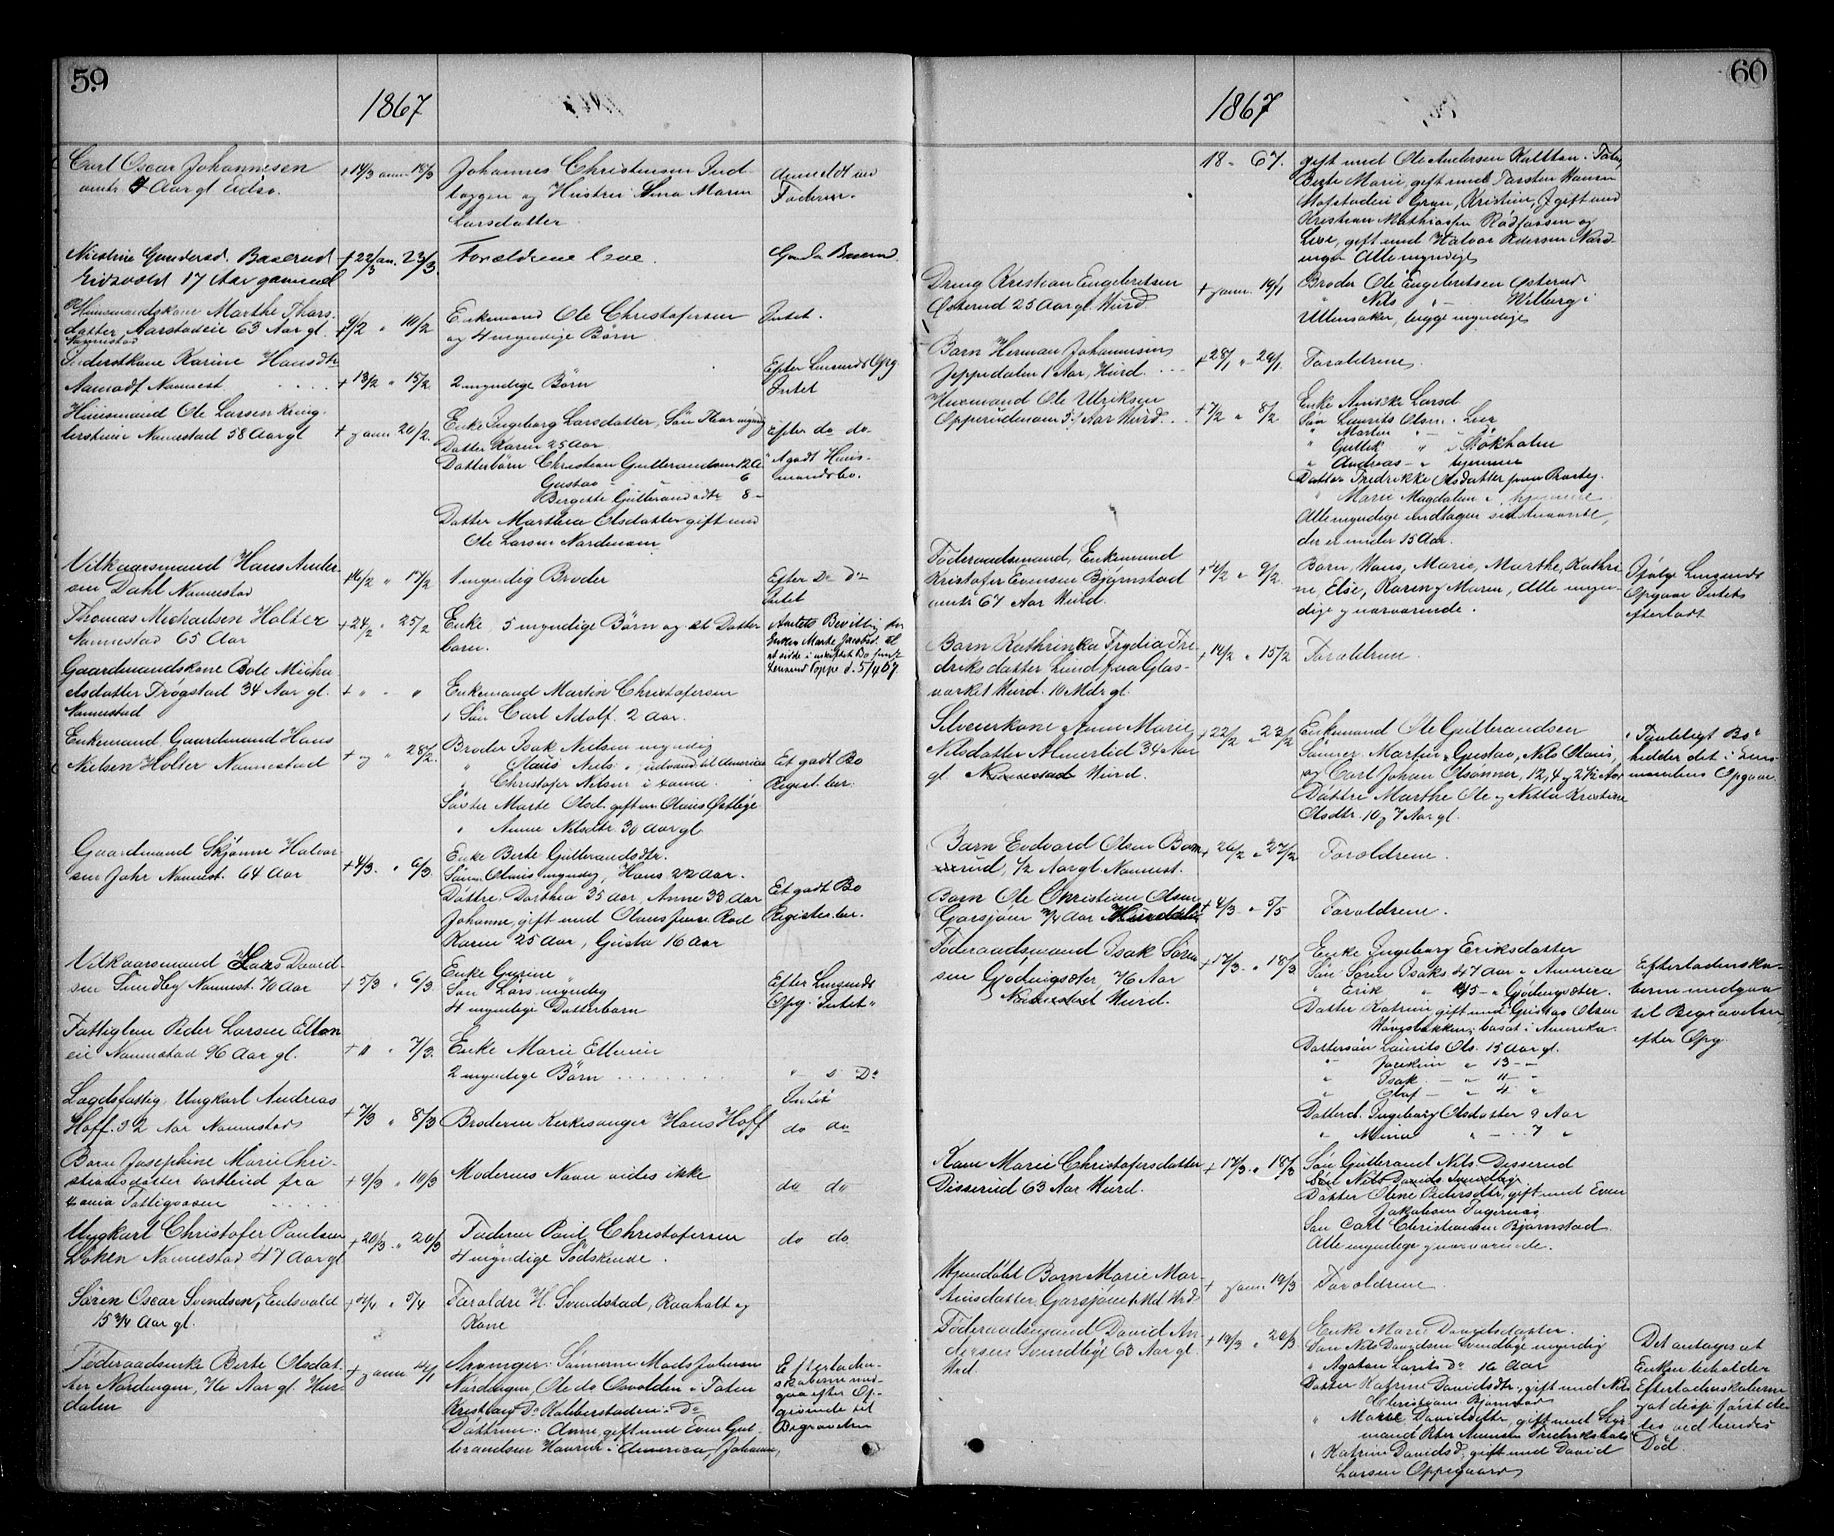 59
1867
Carl Oscar Johannesen
+14/3 anm 18/3
Johannes Christensen
og Hustru Lina Maren
Larsdatter
anmeldt
Faderen.
Eidsvold 17 Aar gammel
+22/3 an. 23/3.
Forældrene leve.
Huusmandskone Marthe Thors-
datter, Aarstadeie 63 Aar gl.
Nannestad
+9/2 " 10/2
Enkemand Ole Christofersen
og 4 myndige Børn
Intet.
Karine Hansdtr
Nannest
+13/2 " 15/2
2 myndige Børn
Efter Lensmds Opg.
Intet
Huusmand Ole Larsen Kring-
lerseie Nannestad 58 Aar gl
+ anm 20/2.
Enke Ingeborg Larsdatter, Søn Thor myndig
Datter Karen 25 Aar
Datterbørn Christian Gulbrandsen 12 A.
Gustav 6
Bergette Gulbrandsdtr 8
Datter Marthea Olsdatter gift med
Ole Larsen Nordmoen
Efter do do
A godt Huus-
mandsbo.
Vilkaarsmand Hans Ander-
sen Dahl Nannestad
+16/2 " 17/2
1 myndig Broder
Efter Do Do
Intet
Thomas Michaelsen Holter
Nannestad 65 Aar
+24/2 " 25/2
Enke 5 myndige Børn og et Datter-
barn.
Amtets Bevilling for
Enken Marte Jacobsd. til
at sidde i uskiftet Bo
Lensmd d. 5/4 67.
Gaardmandskone Bole Micha-
elsdatter Trøgstad 34 Aar gl.
Nannestad
+ " - "
Enkemand Martin Christofersen
1 Søn Carl Adolf. 2 Aar.
Enkemand, Gaardmand Hans
Nielsen Holter Nannestad
+ og " 28/2.
Broder Isak Nielsen myndig
" Olaus Niels " udvand. til America
" Christofer Nilsen i samme.
Søster Marte Olsd. gift m Olaus Østbye
" Anne Nilsdtr. 30 Aar gl
Et godt Bo
Regist. ber.
Gaardmand Skjønne Halvor-
sen Jahr Nannest. 64 Aar
+4/3. " 6/3
Enke Berte Gulbrandsdtr.
Søn Olaus myndig, Hans 22 Aar.
Døttre: Dorthea 35 Aar, Anne 33 Aar
Johanne, gift med Olaus Rød
Karen 25 Aar, Gusta 16 Aar
Et godt Bo
Registes. ber.
Vilkaarsmand Lars David-
sen Sundby Nannest. 70 Aar
+5/3 " 6/3
Enke Gurine
Søn Lars myndig
4 myndige Datterbørn
Efter Lensmds
Opg. "Intet"
Fattiglem Peder Larsen Elton
eie Nannestad 96 Aar gl.
+ " " 7/3.
Enke Marie Eltoneie
2 myndige Børn
" s Do
Lægdsfattig, Ungkarl Andreas
Hoff. 32 Aar Nannestad
+7/3 " 8/3
Broderen Kirkesanger Hans Hoff
Intet
do do
Barn Josephine Marie Chri-
stiansdatter bortleiet fra
Xania Fattigvæsen
+9/3 " 10/3
Moderens Navn vides ikke
do do
Ungkarl Christofer Paulsen
Løken Nannestad 47 Aar gl
+20/3 " 20/3
Faderen Paul Christofersen
4 myndige Sødskende.
do do
Søren Oscar Svendsen, Eidsvold
15 3/4 Aar gl.
+3/4 " 5/4
Forældre H. Svendstad, Raaholt og
Kone
Føderaadsenke Berte Olsdat-
ter Nordengen, 76 Aar gl. Hur-
dalen
+ anm 14/1
Arvinger: Sønnerne Mads Johnsen
Nordengen, Ole do Osvolden i Toten
Kristian Do Kabberstaden Do
Døttrene: Anne, gift med Even Gul-
brandsen Hanrud i America, Johanne,
Efterladen-
skaberne med-
gaa efter Op-
givende til
Begravelsen
60
1867
18 - 67.
gift med Ole Andersen Kalthan i Toten,
Berte Marie, gift med Torsten Hansen
Mofstadeie Gran, Kristine, gift med
Kristian Mathiasen Rødfossen og
Lise, gift med Halvor Pedersen Nord-
engen Alle myndige
Dreng Kristian Engebretsen
Østerud 25 Aar gl. Hurd
+ anm. 19/1
Broder Ole Engebretsen Østerud
" Nils " - Wilberg i
Ullensaker, begge myndige
Barn Herman Johannesen
Jeppedalen 1 Aar, Hurd.
+28/1 " 29/1
Forældrene.
Huusmand Ole Ulriksen
Opperudmoen Aar Hurd.
+7/2 " 8/2
Enke Larsd
Søn Laurits Olsen i Lier
" Martin
" Gullik " i Stokholm
" Andreas - " hjemme
Datter Fredrikke Olsdatter paa Roasteg
" Marie Magdalene i hjemme
Alle myndige undtagen sidstnævnte,
der er under 15 Aar.
Føderaadsmand, Enkemand
Kristofer Evensen Bjørnstad
67 Aar Hurd.
+7/2 " 9/2
Børn, Hans, Marie, Marthe, Kathri-
ne, Else, Karen og Maren, Alle myn-
dige og nærværende.
Ifølge Lensmds
Opgave Intet
efterladt
Barn Kathrinka Frydia Fre-
driksdatter Lund paa Glas-
værket Hurd. 10 Mdr gl.
+14/2 " 15/2
Forældrene.
Selveierkone Anne Marie
Nilsdatter Almerlid 34 Aar
gl. Nannestad Hurd.
+22/2 " 23/2
Enkemand Ole Gulbrandsen
Sønner: Martin, Gustav, Nils Olaus,
og Carl Johan Olsønner, 12, 4 og 2 1/2 Aar
Døttre Marthe Ole og Netta Kristine
Olsdtr. 10 og 7 Aar gl.
"Taaleligt Bo"
hedder det i Lens-
mandens Opgave
Barn Edvard Olsen
rud, 1/2 Aar gl Nannest.
+26/2 " 27/2
Forældrene.
Barn Ole Christian Olsen
Garsjøen 3/4 Aar Hurdalen
+4/3 " 5/5
Forældrene.
Føderaadsmand Isak Søren-
sen Gjødingsæter 76 Aar
Nannestad Hurd.
+17/3 " 18/3
Enke Ingeborg Eriksdatter
Søn: Søren Isaks. 47 Aar i America
" Erik " 45 - " Gjødingsæter.
Datter Katrine gift med Gustav Olsen
Haugsbakken, bosat i Amerika.
Dattersøn Laurits Ols. 15 Aar gl.
" Joakim " 13 - "
" Isak - " 11 - "
" Olaf - " 4 "
Datterd. Ingeborg Olsdatter 9 Aar
" Mina " - 7 "
Efterladenska-
berne medgaa
til Begravelsen
efter Opg.
Kone Marie Christofersdatter
Disserud 63 Aar Hurd.
+17/3 " 18/3
Søn Gulbrand Nils. Disserud
Søn Nils Davids. Svendbye
Datter Oline Pedersdtr, gift med Even
Jakobsen Fagernæs
Søn Carl Christiansen Bjørnstad.
Alle myndige og nærværende.
Hjemdøbt Barn Marie Mar-
tinsdatter, Garsjøen Hrd
+ anm 19/3
Forældrene.
Føderaadsmand David An-
dersen Svendbye 63 Aar gl.
Hrd.
+19/3 " 20/3
Enke Marie Davidsdatter.
Søn Nils Davidsen Svendbye myndig
" Agaton Laritz Do 16 Aar
Datter Katrine Davidsdtr, gift med Nils
Christians Bjørnstad
" Marie Davidsdtr, gift med Styr-
mand Peter Monsen Fredrikshald
" Katrine Davidsd. gift med David
Larsen Oppegaard
Det antages at
Enken beholder
Efterladenskaberne
og at disse først de-
les ved hendes
Død.